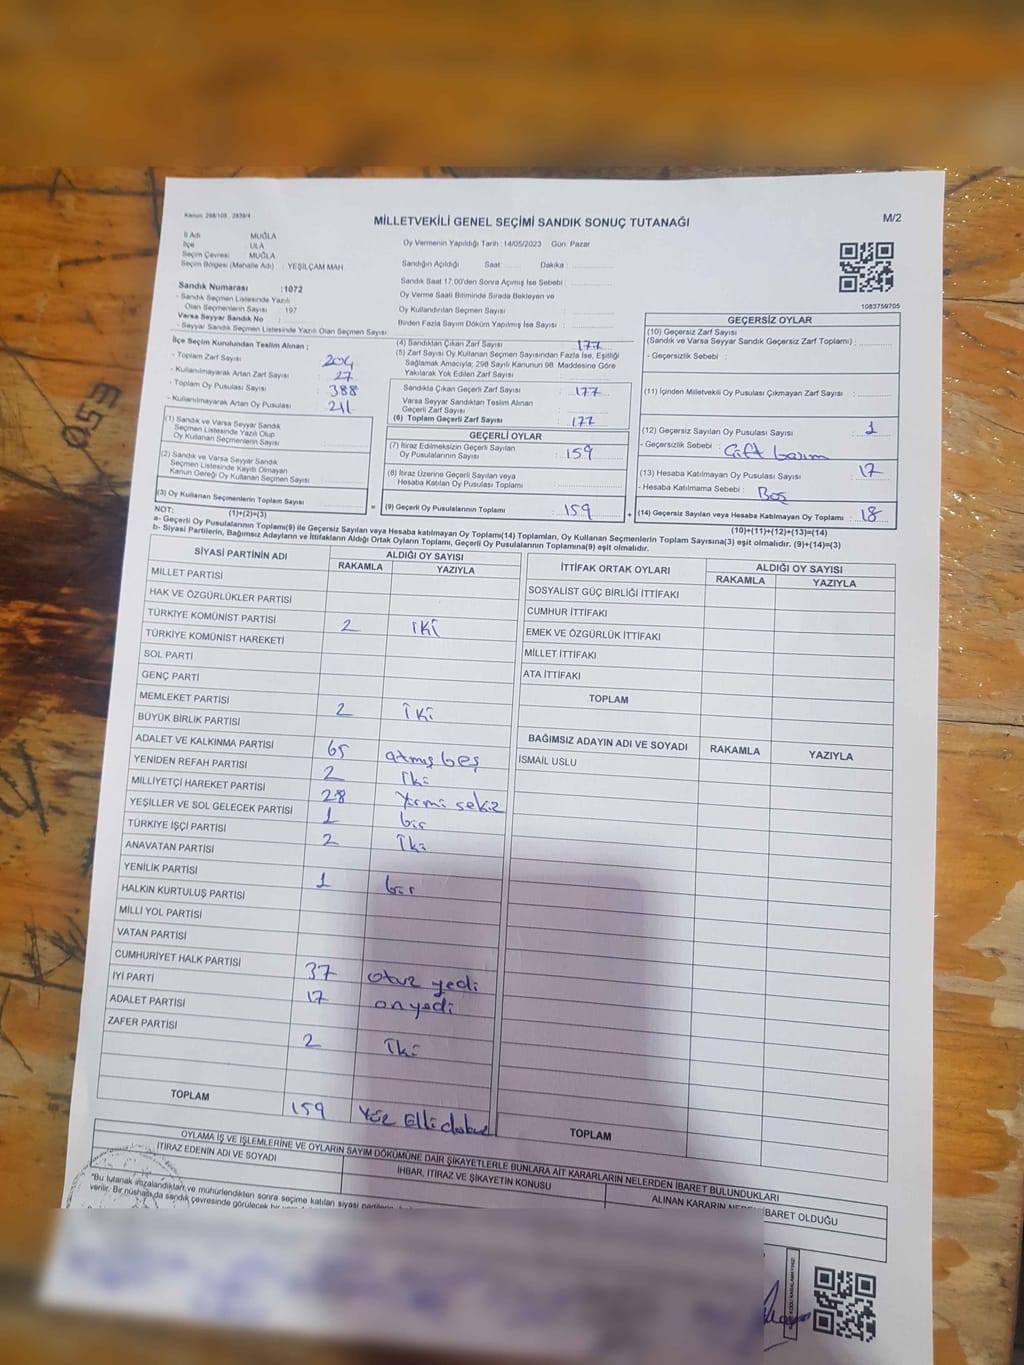 Kanun, 298/105 , 2839/4
MİLLETVEKİLİ GENEL SEÇİMİ SANDIK SONUÇ TUTANAĞI
M/2
İl Adı : MUĞLA
İlçe : ULA
Seçim Çevresi : MUĞLA
Seçim Bölgesi (Mahalle Adı) : YEŞİLÇAM MAH
Sandık Numarası :1072
- Sandık Seçmen Listesinde Yazılı
Olan Seçmenlerin Sayısı : 197
Varsa Seyyar Sandık No :
- Seyyar Sandık Seçmen Listesinde Yazılı Olan Seçmen Sayısı:
Oy Vermenin Yapıldığı Tarih :14/05/2023 Gün: Pazar
Sandığın Açıldığı Saat: Dakika :
Sandık Saat 17:00'den Sonra Açımış İse Sebebi :
Oy Verme Saati Bitiminde Sırada Bekleyen ve
Oy Kullandırılan Seçmen Sayısı :
Birden Fazla Sayım Döküm Yapılmış İse Sayısı :
1083759705
İlçe Seçim Kurulundan Teslim Alınan ;
- Toplam Zarf Sayısı : 204
- Kullanılmayarak Artan Zarf Sayısı : 27
- Toplam Oy Pusulası Sayısı : 388
- Kullanılmayarak Artan Oy Pusulası : 211
(1) Sandık ve Varsa Seyyar Sandık
Seçmen Listesinde Yazılı Olup
Oy Kullanan Seçmenlerin Sayısı :
(2) Sandık ve Varsa Seyyar Sandık
Seçmen Listesinde Kayıtlı Olmayan
Kanun Gereği Oy Kullanan Seçmenlerin Sayısı :
(3) Oy Kullanan Seçmenlerin Toplam Sayısı
(1)+(2)=(3)
(4) Sandıktan Çıkan Zarf Sayısı : 177
(5) Zarf Sayısı Oy Kullanan Seçmen Sayısından Fazla İse, Eşitliği
Sağlamak Amacıyla; 298 Sayılı Kanunun 98. Maddesine Göre
Yakılarak Yok Edilen Zarf Sayısı :
Sandıkta Çıkan Geçerli Zarf Sayısı : 177
Varsa Seyyar Sandıktan Teslim Alınan
Geçerli Zarf Sayısı :
(6) Toplam Geçerli Zarf Sayısı : 177
GEÇERLİ OYLAR
(7) İtiraz Edilmeksizin Geçerli Sayılan
Oy Pusulalarının Sayısı : 159
(8) İtiraz Üzerine Geçerli Sayılan veya
Hesaba Katılan Oy Pusulası Toplamı :
= (9) Geçerli Oy Pusulalarının Toplamı : 159
GEÇERSİZ OYLAR
(10) Geçersiz Zarf Sayısı
(Sandık ve Varsa Seyyar Sandık Geçersiz Zarf Toplamı) :
- Geçersizlik Sebebi :
(11) İçinden Milletvekili Oy Pusulası Çıkmayan Zarf Sayısı :
(12) Geçersiz Sayılan Oy Pusulası Sayısı : 1
- Geçersizlik Sebebi : Çift basım
(13) Hesaba Katılmayan Oy Pusulası Sayısı : 17
- Hesaba Katılmama Sebebi : Boş
+ (14) Geçersiz Sayılan veya Hesaba Katılmayan Oy Toplamı : 18
(10)+(11)+(12)+(13)=(14)
NOT:
a- Geçerli Oy Pusulalarının Toplamı(9) ile Geçersiz Sayılan veya Hesaba katılmayan Oy Toplamı(14) Toplamları, Oy Kullanan Seçmenlerin Toplam Sayısına(3) eşit olmalıdır. (9)+(14)=(3)
b- Siyasi Partilerin, Bağımsız Adayların ve İttifakların Aldığı Ortak Oyların Toplamı, Geçerli Oy Pusulalarının Toplamına(9) eşit olmalıdır.
SİYASİ PARTİNİN ADI
ALDIĞI OY SAYISI
RAKAMLA YAZIYLA
MİLLET PARTİSİ
HAK VE ÖZGÜRLÜKLER PARTİSİ
TÜRKİYE KOMÜNİST PARTİSİ 2 iki
TÜRKİYE KOMÜNİST HAREKETİ
SOL PARTİ
GENÇ PARTİ
MEMLEKET PARTİSİ 2 iki
BÜYÜK BİRLİK PARTİSİ
ADALET VE KALKINMA PARTİSİ 65 atmış beş
YENİDEN REFAH PARTİSİ 2 iki
MİLLİYETÇİ HAREKET PARTİSİ 28 Yirmi sekiz
YEŞİLLER VE SOL GELECEK PARTİSİ 1 bir
TÜRKİYE İŞÇİ PARTİSİ 2 iki
ANAVATAN PARTİSİ
YENİLİK PARTİSİ 1 bir
HALKIN KURTULUŞ PARTİSİ
MİLLİ YOL PARTİSİ
VATAN PARTİSİ
CUMHURİYET HALK PARTİSİ 37 otuz yedi
İYİ PARTİ 17 onyedi
ADALET PARTİSİ
ZAFER PARTİSİ 2 iki
TOPLAM 159 Yüz Elli dokuz
İTTİFAK ORTAK OYLARI
ALDIĞI OY SAYISI
RAKAMLA YAZIYLA
SOSYALİST GÜÇ BİRLİĞİ İTTİFAKI
CUMHUR İTTİFAKI
EMEK VE ÖZGÜRLÜK İTTİFAKI
MİLLET İTTİFAKI
ATA İTTİFAKI
TOPLAM
BAĞIMSIZ ADAYIN ADI VE SOYADI RAKAMLA YAZIYLA
İSMAİL USLU
TOPLAM
OYLAMA İŞ VE İŞLEMLERİNE VE OYLARIN SAYIM DÖKÜMÜNE DAİR ŞİKAYETLERLE BUNLARA AİT KARARLARIN NELERDEN İBARET BULUNDUKLARI
İTİRAZ EDENİN ADI VE SOYADI
İHBAR, İTİRAZ VE ŞİKAYETİN KONUSU
ALINAN KARARIN İBARET OLDUĞU
"Bu tutanak imzalandıktan ve mühürlendikten sonra seçime katılan siyasi
verilir. Bir nüshası da sandık çevresinde görülecek bir
053